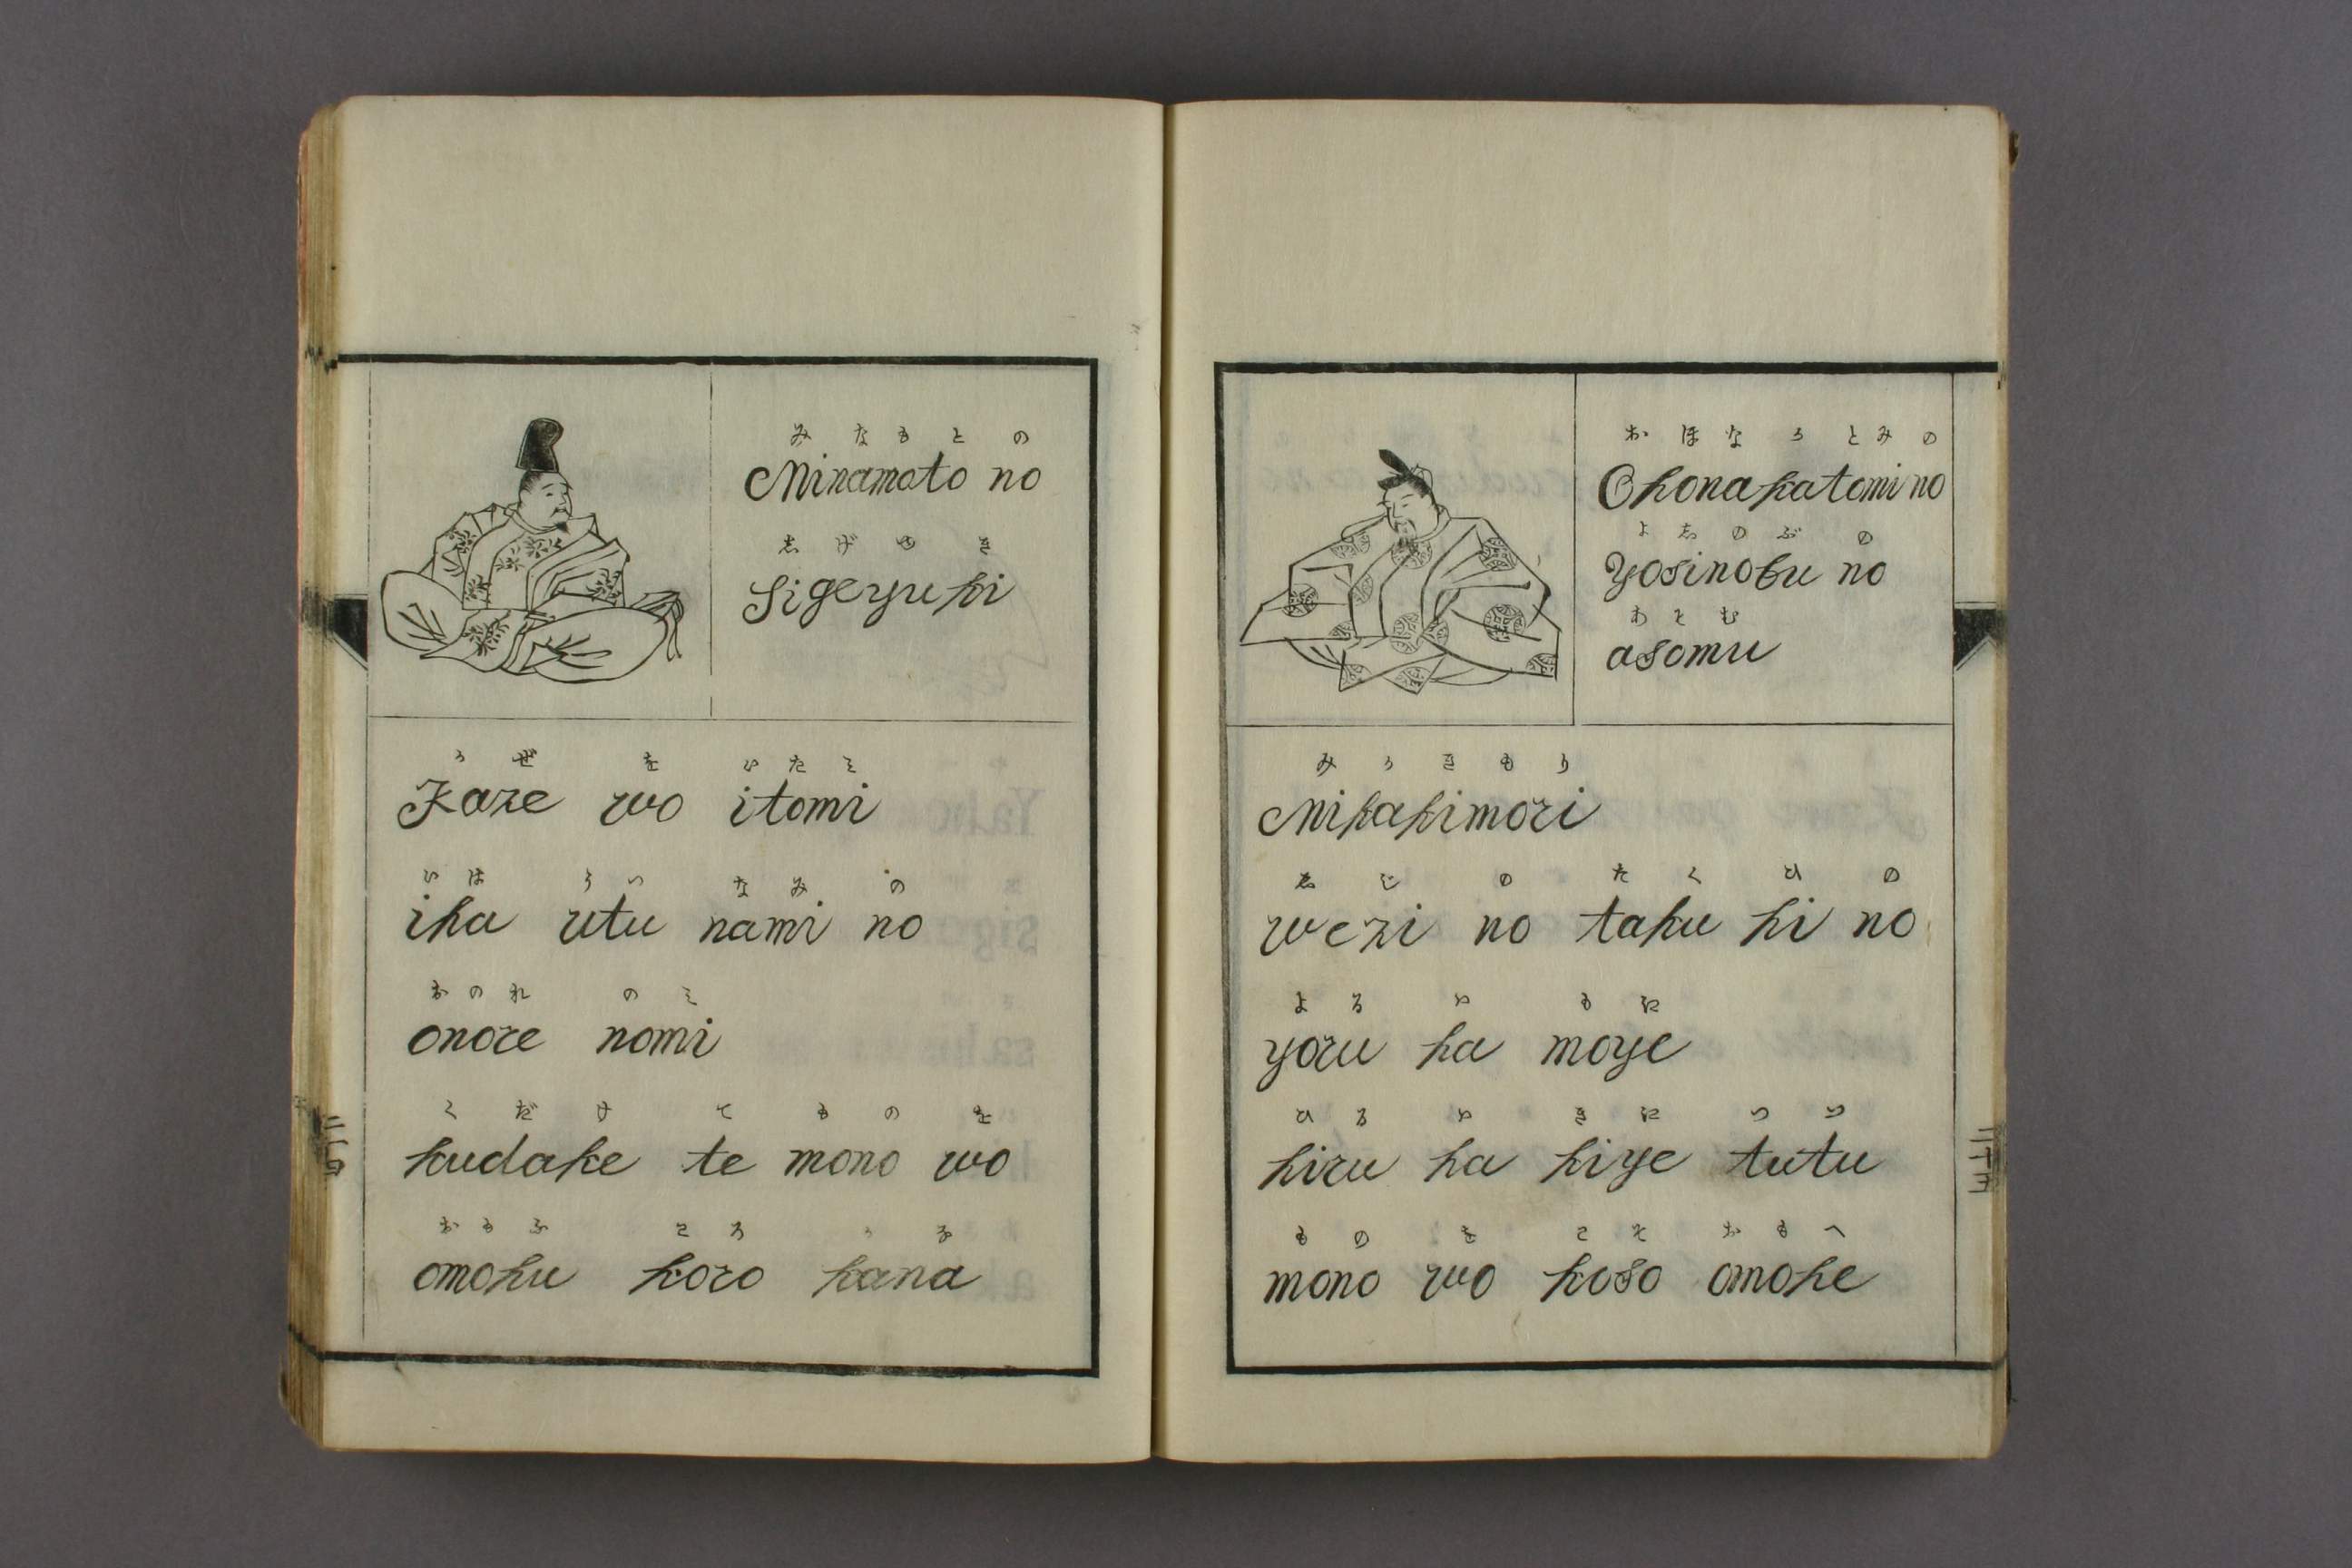 みなもとの
Minamoto no
しげゆき
Sigeyuki
かぜ を いたミ
Kaze wo itomi
いは うつ なみ の
iha utu nami no
おのれ のミ
onore nomi
くだけ て もの を
kudake te mono wo
おもふ ころ かな
omohu koro kana
おほなかとみの
Ohonakatomi no
よしのぶ の
Yosinobu no
あそむ
asomu
みかきもり
Mikakimori
ゑじ の たく ひ の
wezi no taku hi no
よる は もえ
yoru ha moye
ひる は きえ つつ
hiru ha kiye tutu
もの を こそ おもへ
mono wo koso omohe